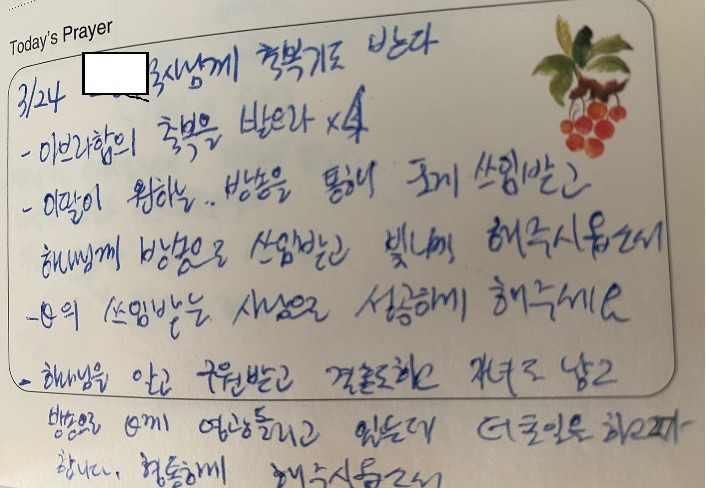 Today's Prayer
3/24 목사님께 축복기도 받다
- 아브라함의 축복을 받으라 x4
- 이딸이 원하는.. 방송을 통해 크게 쓰임받고
하나님께 방송으로 쓰임받고 빛나게 해주시옵소서
- θ의 쓰임받는 사람으로 성공하게 해주세요
- 하나님을 알고 구원받고 결혼도하고 자녀도 낳고
방송으로 θ께 영광돌리고 있는데 더 큰일을 하고자
합니다. 형통하게 해주시옵소서